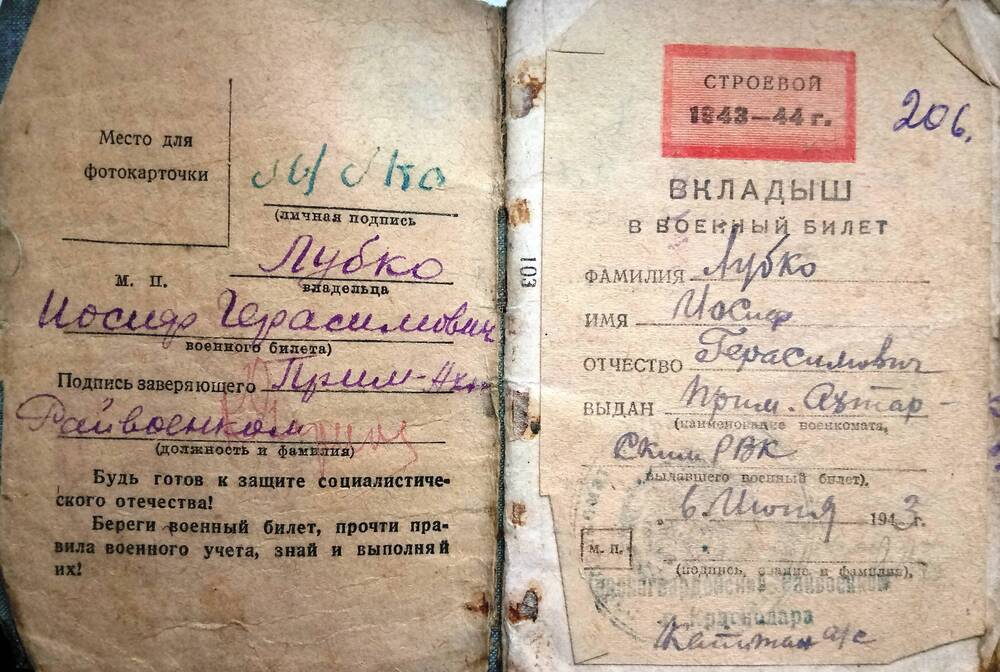 Место для
фотокарточки
(личная подпись
Лубко
М. П.
владельца
Иосиф Герасимович
военного билета)
Подпись заверяющего Прим-Ахт
Райвоенком
(должность и фамилия)
Будь готов к защите социалистиче-
ского отечества!
Береги военный билет, прочти пра-
вила военного учета, знай и выполняй
их!
103
СТРОЕВОЙ
1943—44 г.
206.
ВКЛАДЫШ
В ВОЕННЫЙ БИЛЕТ
ФАМИЛИЯ Лубко
ИМЯ Иосиф
ОТЧЕСТВО Герасимович
ВЫДАН Прим. Ахтар-
(наименование военкомата,
ским РВК
выдавшего военный билет).
1943 г.
М. П.
(подпись, звание и фамилия).
г. Краснодара
Капитан а/с